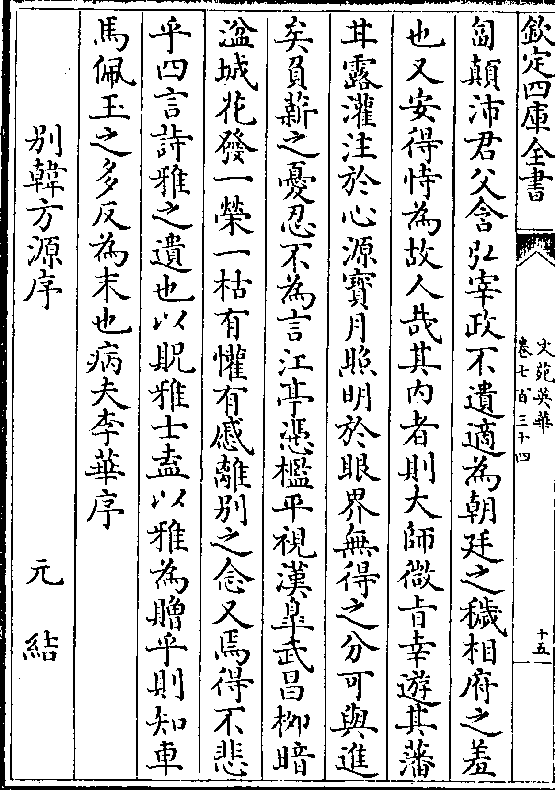 欽定四庫全書
文苑英華
卷七百三十四
十五
匐顛沛君父含弘宰政不遺適為朝廷之穢相府之羞
也又安得恃為故人哉其内者則大師微旨幸遊其藩
甘露灌注於心源寶月照明於眼界無得之分可與進
矣負薪之憂忍不為言江亭憑檻平視漢皐武昌栁暗
湓城花發一榮一枯有懽有慼離别之念又焉得不悲
乎四言詩雅之遺也以貺雅士盍以雅為贈乎則知車
馬佩玉之多反為末也病夫李華序
别韓方源序
元結